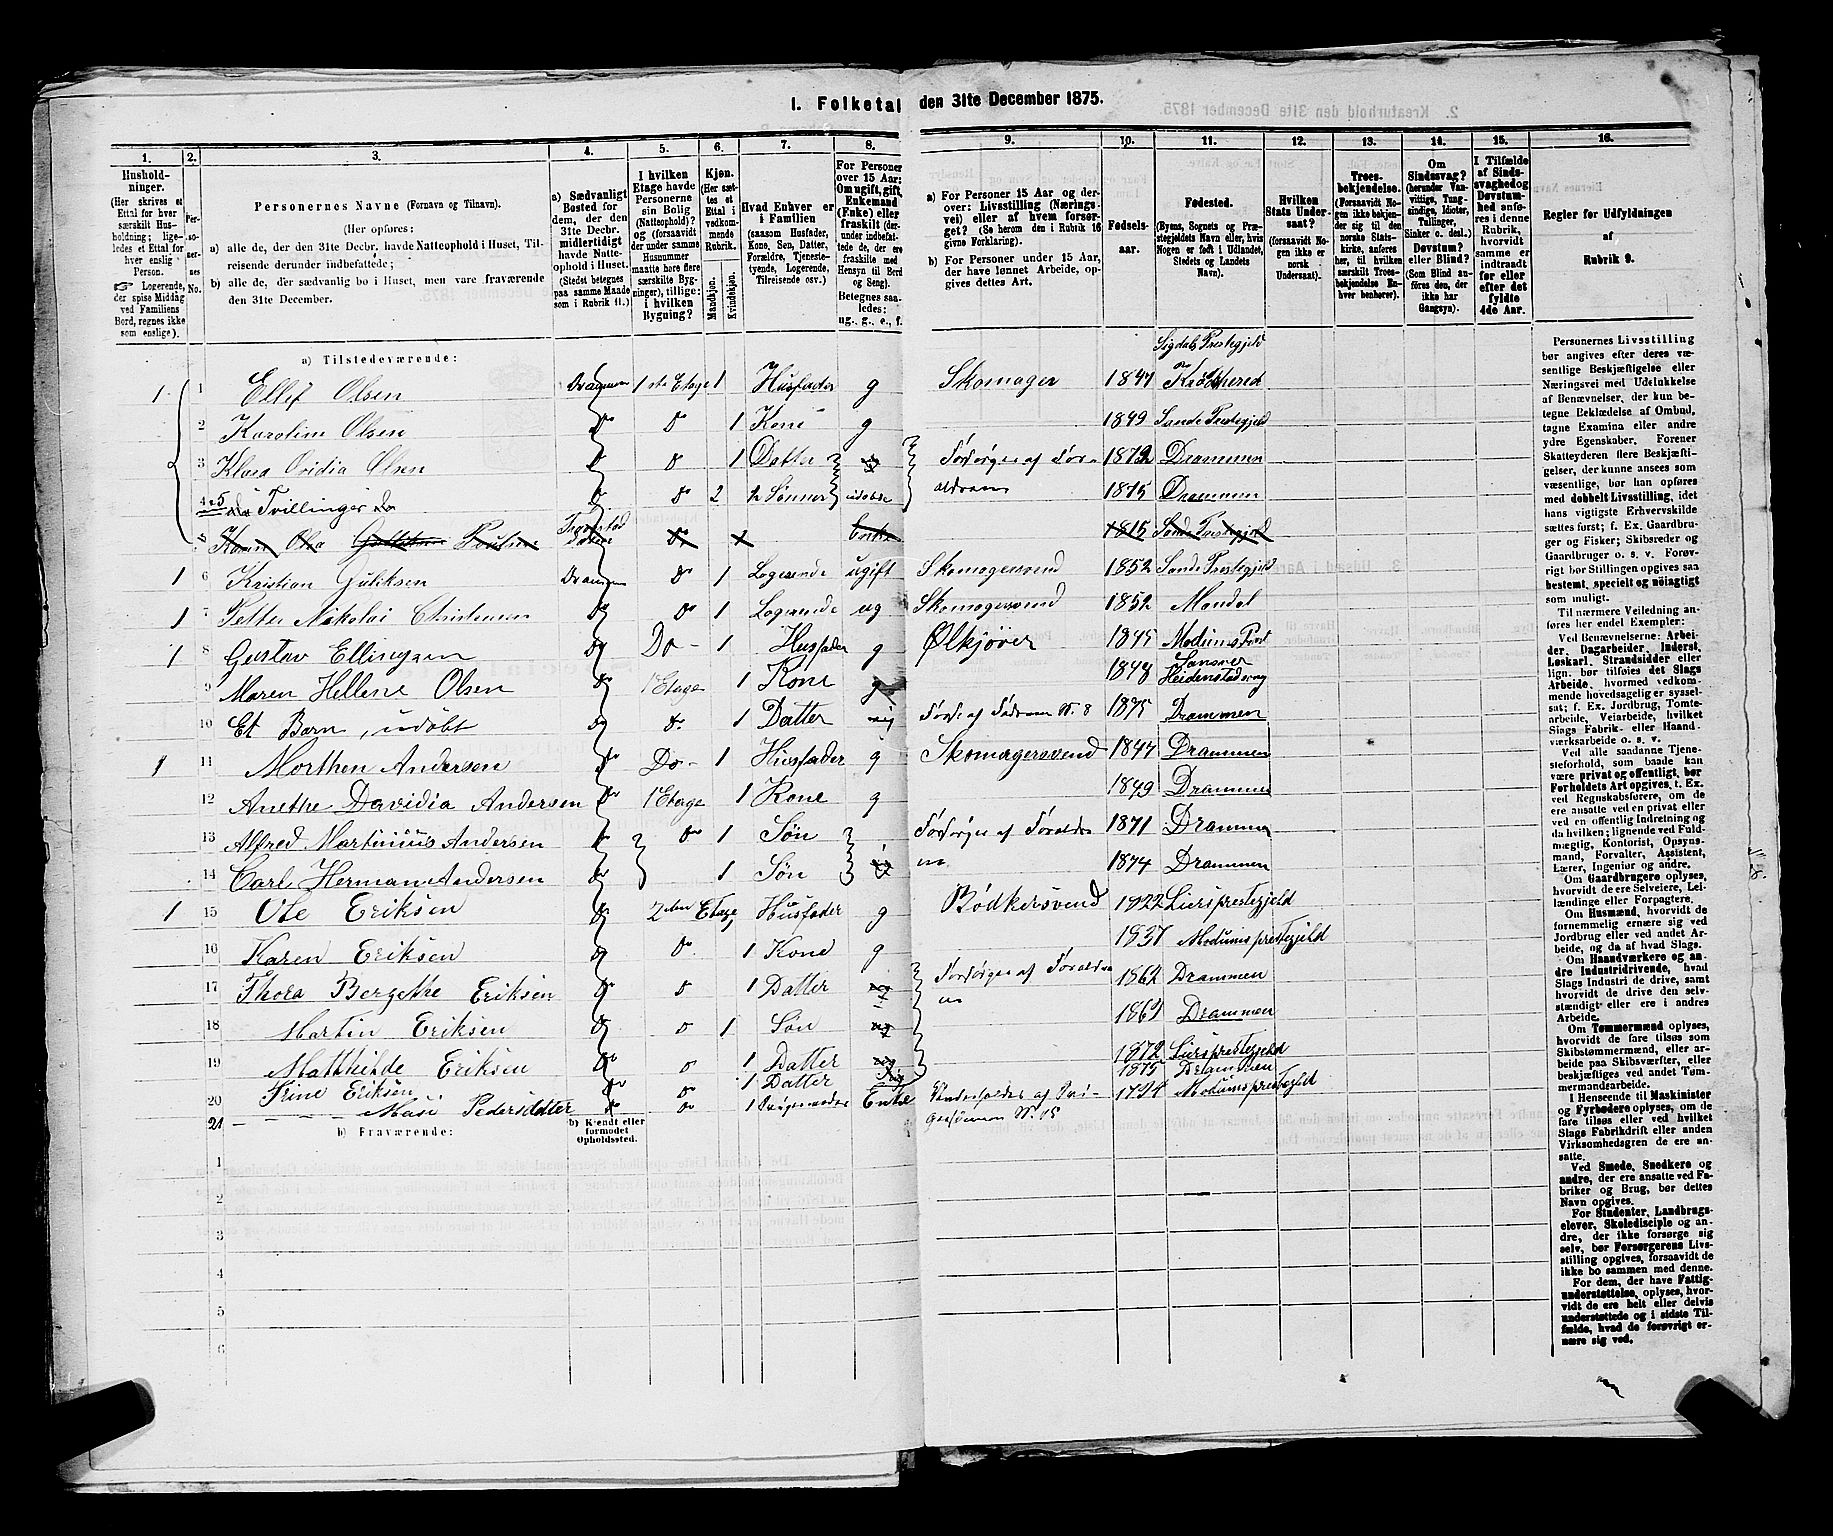 1. Folketal den 31te December 1875.
1. 2. 3. 4. 5. 6. 7. 8. 9. 10. 11. 12. 13. 14. 15. 16.
Husholdninger. (Her skrives et Ettal for hver særskilt Husholdning; ligeledes et Ettal for hver enslig Person. Logerende, der spise Middag ved Familiens Bord, regnes ikke som enslige).
Personernes No.
Personernes Navne (Fornavn og Tilnavn).
(Her opføres:
a) alle de, der den 31te Decbr. havde Natteophold i Huset, Tilreisende derunder indbefattede;
b) alle de, der sædvanlig bo i Huset, men vare fraværende den 31te December.
a) Sædvanligt Bosted for dem, der den 31te Decbr. midlertidigt havde Natteophold i Huset. (Stedet betegnes paa samme Maade som i Rubrik 11.)
I hvilken Etage havde Personerne sin Bolig (Natteophold)? og (forsaavidt der under samme Husnummer maatte høre flere særskilte Bygninger), tillige: i hvilken Bygning?
Kjøn. (Her sættes et Ettal i vedkommende Rubrik.
Mandkjøn. Kvindekjøn.
Hvad Enhver er i Familien (saasom Husfader, Kone, Søn, Datter, Forældre, Tjenestetyende, Logerende, Tilreisende osv.)
For Personer over 15 Aar: Om ugift, gift, Enkemand (Enke) eller fraskilt (derunder indbefattede de, der ere fraskilte med Hensyn til Bord og Seng). Betegnes saaledes: ug., g., e., f.
a) For Personer 15 Aar og derover: Livsstilling (Næringsvei) eller af hvem forsørget? (Se herom den i Rubrik 16 givne Forklaring).
b) For Personer under 15 Aar, der have lønnet Arbeide, opgives dettes Art.
Fødselsaar.
Fødested. (Byens, Sognets og Præstegjeldets Navn eller, hvis Nogen er født i Udlandet, Stedets og Landets Navn).
Hvilken Stats Undersaat? (forsaavidt Nogen ikke er norsk Undersaat).
Troesbekjendelse. (Forsaavidt Nogen ikke bekjender sig til den norske Statskirke, anføres her, til hvilken særskilt Troesbekjendelse Enhver henhører).
Om Sindssvag? (herunder Vanvittige, Tungsindige, Idioter, Tullinger, Sinker o. desl.) Døvstum? eller Blind? (Som Blind anføres den, der ikke har Gangsyn).
I Tilfælde af Sindssvaghed og Døvstumhed anføres i denne Rubrik, hvorvidt samme er indtraadt før eller efter det fyldte 4de Aar.
Regler for Udfyldningen af Rubrik 9.
a) Tilstedeværende:
1 1 Ellef Olsen Drammen 1ste Etage 1 Husfader g Skomager 1847 Sigdals Prestegjeld Krødshered
2 Karoline Olsen Do Do 1 Kone g 1849 Sande Prestegjeld
3 Klara Ovidia Olsen Do Do 1 Datter Forsørges af Forældrene 1872 Drammen
4 5 Tvillinger Do Do 2 2 Sønner udøbte 1875 Drammen
5 Karen Olea Poulsen Do Enke 1815 Sande Prestegjeld
1 6 Kristian Guliksen Drammen Do 1 Logerende ugift Skomagersvend 1852 Sande Prestegjeld
1 7 Petter Nikolai Christensen Do Do 1 Logerende ug Skomagersvend 1852 Mandal
1 8 Gustav Ellingsen Do Do 1 Husfader g Ølkjører 1845 Modums Prst
9 Maren Hellene Olsen Do 1 Etage 1 Kone g 1848
10 Et Barn, udøbt Do Do 1 Datter N. 8 1875 Drammen
1 11 Morthen Andersen Do Do 1 Husfader g Skomagersvend 1847 Drammen
12 Anethe Davidia Andersen Do 1 Etage 1 Kone g 1849 Drammen
13 Alfred Martinius Andersen Do Do 1 Søn Forsørges af Forældrene 1871 Drammen
14 Carl Herman Andersen Do 1 Søn 1874 Drammen
1 15 Ole Eriksen Do 2den Etage 1 Husfader g Bødkersvend 1822 Liers prestegjeld
16 Karen Eriksen Do Do 1 Kone g 1837 Modums prestegjeld
17 Thora Bergethe Eriksen Do Do 1 Datter Forsørges af Forældrene 1862 Drammen
18 Martin Eriksen Do Do 1 Søn Drammen
19 Matthilde Eriksen Do Do 1 Datter 1872 Liers prestegjeld
20 Trine Eriksen Do Do 1 Datter 1875 Drammen
21 Mari Pedersdatter Do Do 1 Enke N. 15 1794 Modums prestegjeld
b) Fraværende:
b) Kjendt eller formodet Opholdssted.
1
2
3
4
5
6
Personernes Livsstilling bør angives efter deres væsentlige Beskjæftigelse eller Næringsvei med Udelukkelse af Benævnelser, der kun betegne Beklædelse af Ombud, tagne Examina eller andre ydre Egenskaber. Forener Skatteyderen flere Beskjæftigelser, der kunne ansees som væsentlige, bør han opføres med dobbelt Livsstilling, idet hans vigtigste Erhvervskilde sættes forst; f. Ex. Gaardbruger og Fisker; Skibsreder og Gaardbruger o. s. v. Forøvrigt bør Stillingen opgives saa bestemt, specielt og nöiagtigt som muligt.
Til nærmere Veiledning anføres her endel Exempler:
Ved Benævnelserne: Arbeider, Dagarbeider, Inderst, Løskarl, Strandsidder eller lign. bør tilføies det Slags Arbeide, hvormed vedkommende hovedsagelig er sysselsat; f. Ex. Jordbrug, Tomtearbeide, Veiarbeide, hvilket Slags Fabrik- eller Haandværksarbeide o. s. v.
Ved alle saadanne Tjenesteforhold, som baade kan være privat og offentligt, bør Forholdets Art opgives, t. Ex. ved Regnskabsførere, om de ere ansatte ved en privat eller ved en offentlig Indretning og da hvilken; lignende ved Fuldmægtig, Kontorist, Opsynsmand, Forvalter, Assistent, Lærer, Ingeniør og andre.
Om Gaardbrugere oplyses, hvorvidt de ere Selveiere, Leilændinge eller Forpagtere.
Om Husmænd, hvorvidt de fornemmelig ernære sig ved Jordbrug eller ved andet Arbeide, og da af hvad Slags.
Om Haandværkere og andre Industridrivende, hvad Slags Industri de drive, samt hvorvidt de drive den selvstændigt eller ere i andres Arbeide.
Om Tømmermænd oplyses, hvorvidt de fare tilsøs som Skibstømmermænd, eller arbeide paa Skibsværfter, eller beskjæftiges ved andet Tømmermandsarbeide.
I Henseende til Maskinister og Fyrbødere oplyses, om de fare tilsøs eller ved hvilket Slags Fabrikdrift eller anden Virksomhedsgren de ere ansatte.
Ved Smede, Snedkere og andre, der ere ansatte ved Fabriker og Brug, bør dettes Navn opgives.
For Studenter, Landbrugselever, Skoledisciple og andre, der ikke forsørge sig selv, bør Forsørgerens Livsstilling opgives, forsaavidt de ikke bo sammen med denne.
For dem, der have Fattigunderstøttelse, oplyses, hvorvidt de ere helt eller delvis understøttede og i sidste Tilfælde, hvad de forøvrigt ernære sig ved.